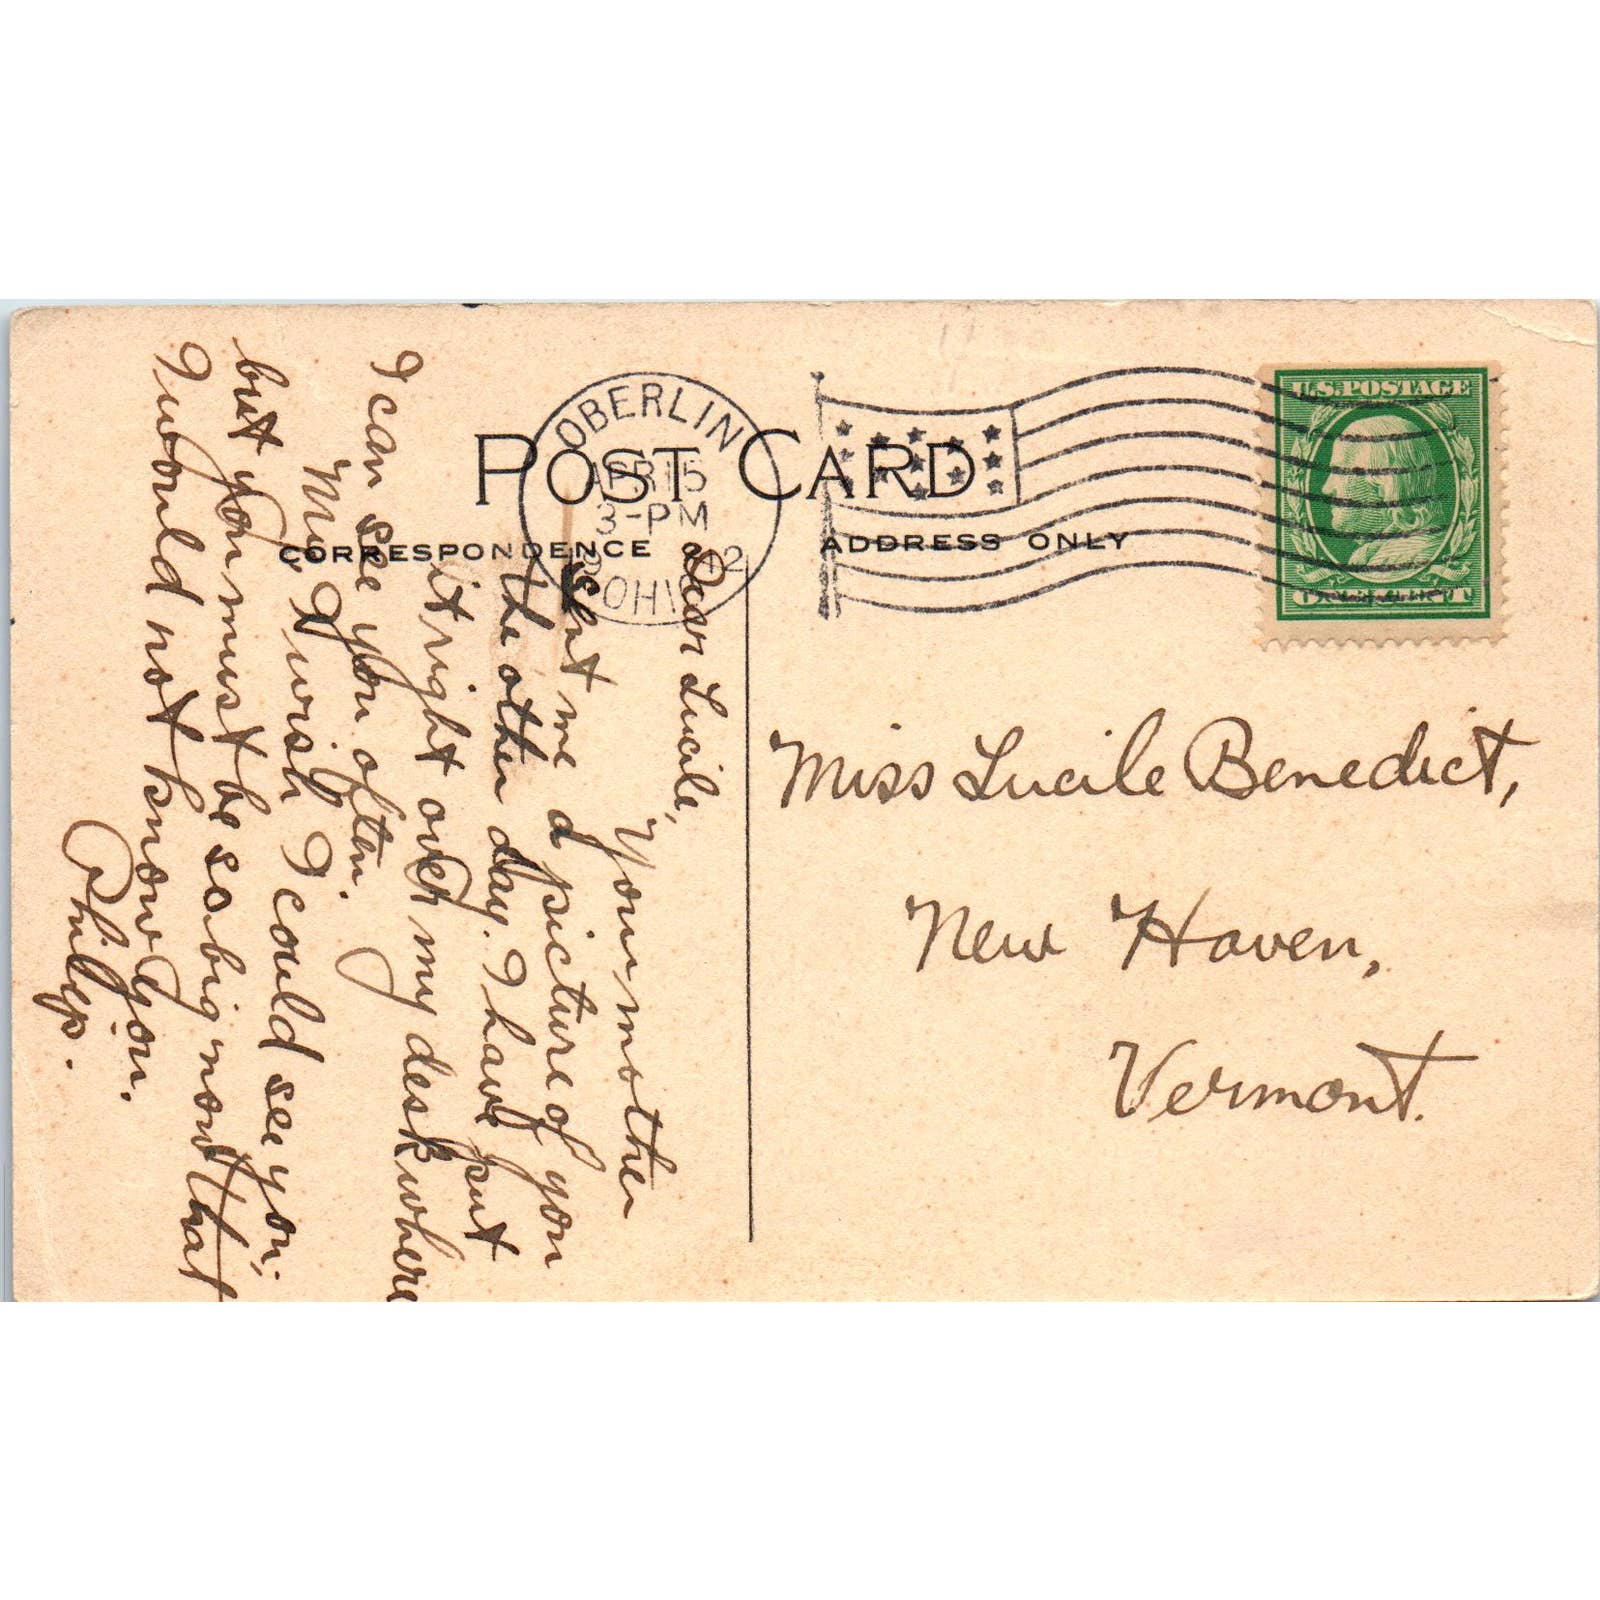 POST CARD
CORRESPONDENCE
ADDRESS ONLY
OBERLIN
APR 15
3-PM
OHIO
U.S. POSTAGE
Miss Lucile Benedict,
New Haven,
Vermont.
Dear Lucile,
Your mother
sent me a picture of you
the other day. I have put
it right over my desk where
I can see you often.
My, I wish I could see you;
but you must be so big now that
I would not know you.
Philip.